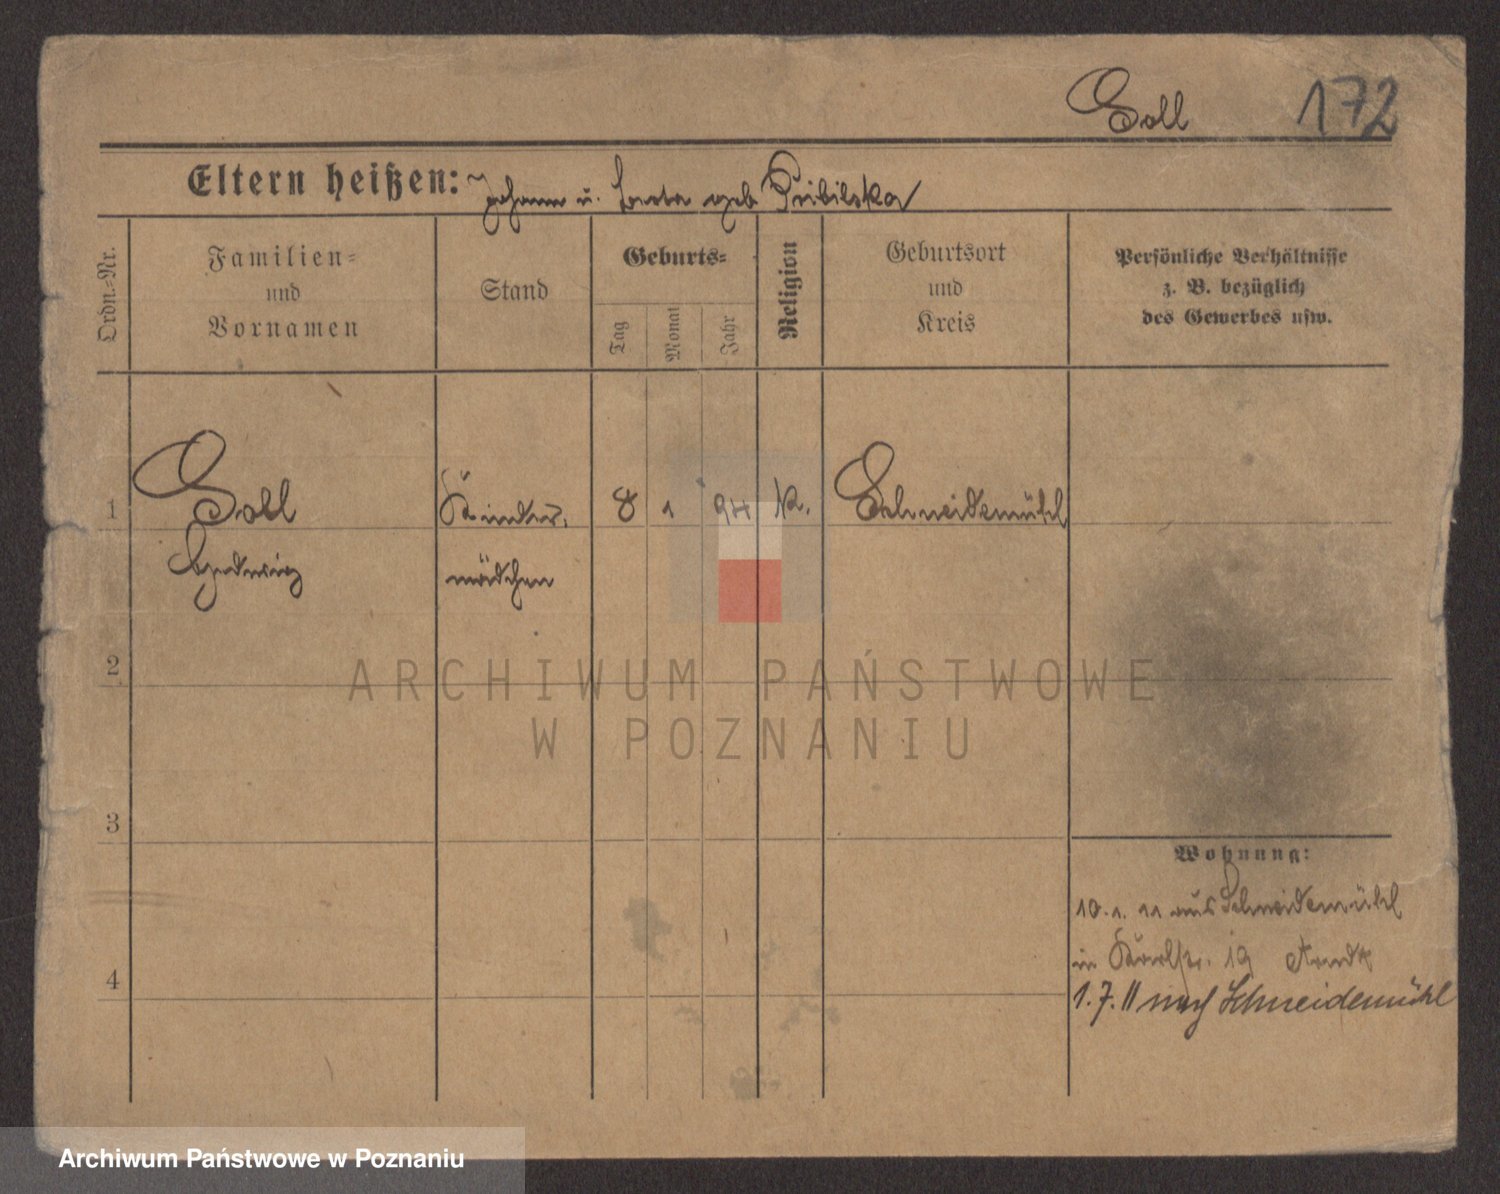 Soll 172
Eltern heißen: Johann u. geb Pribilska
Ordn.-Nr.
Familien=
und
Vornamen
Stand
Geburts=
Tag
Monat
Jahr
Religion
Geburtsort
und
Kreis
Persönliche Verhältnisse
z. B. bezüglich
des Gewerbes usw.
1 Soll Kinder. 8 1 94 k. Schneidemühl
Hedwig mädchen
2
3
4
Wohnung:
10. 1. 11 aus Schneidemühl
in 19
1. 7. 11 nach Schneidemühl
ARCHIWUM PAŃSTWOWE
W POZNANIU
Archiwum Państwowe w Poznaniu